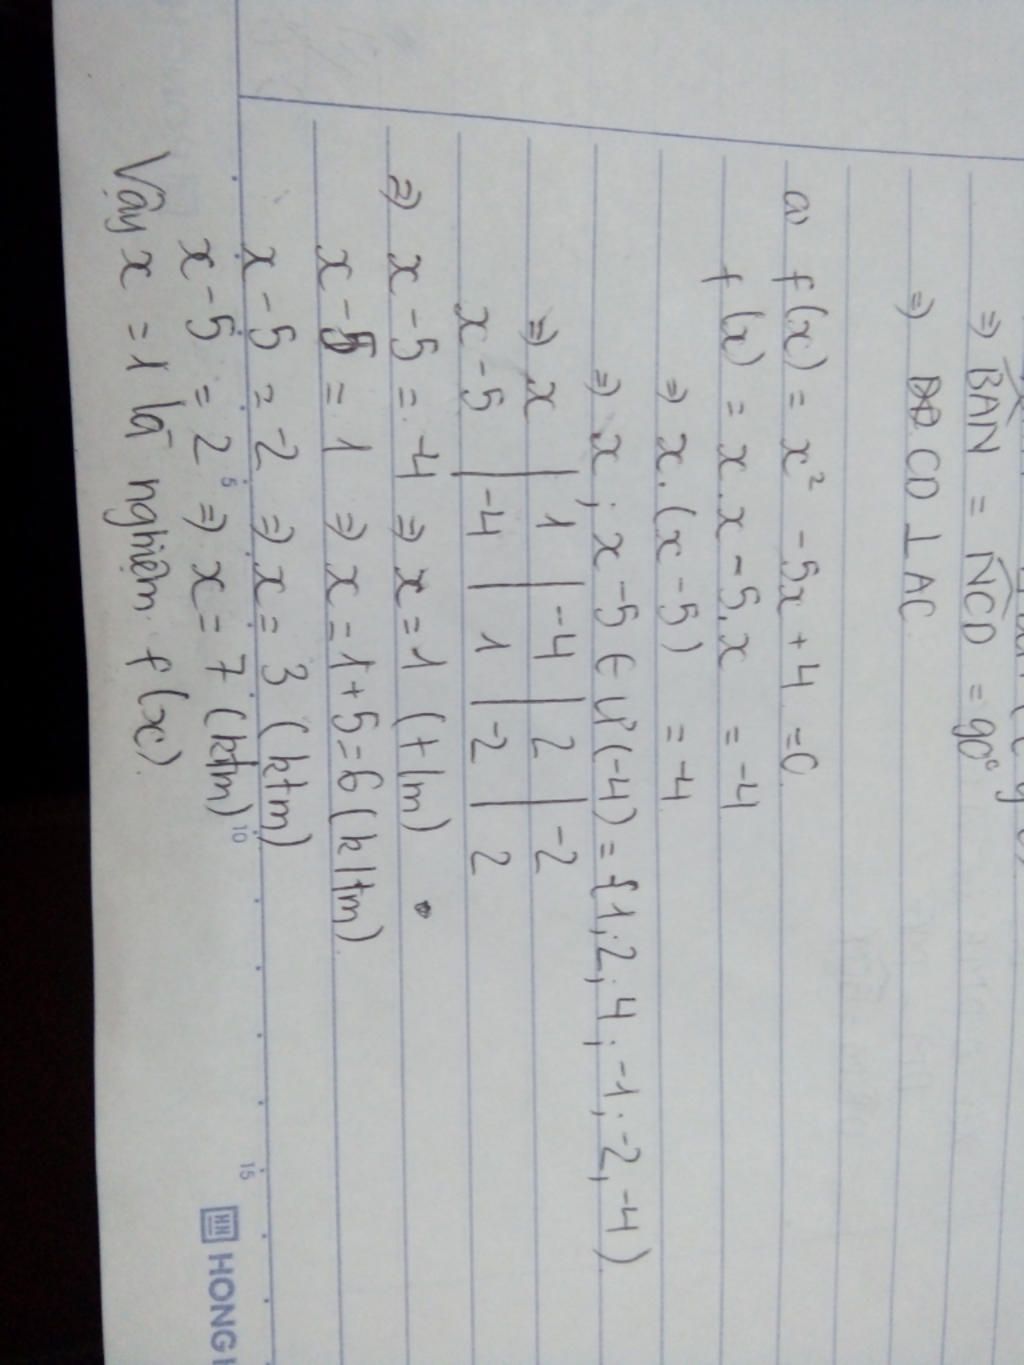 ⇒ BAN = NCD = 90°
⇒ CD ⊥ AC
a) f(x) = x² - 5x + 4 = 0
f(x) = x.x - 5.x = -4
⇒ x.(x - 5) = -4
⇒ x ; x - 5 ∈ Ư(-4) = {1; 2; 4; -1; -2; -4)
⇒ x | 1 | -4 | 2 | -2
x - 5 | -4 | 1 | -2 | 2
⇒) x - 5 = -4 ⇒ x = 1 (t/m)
x - 5 = 1 ⇒ x = 1 + 5 = 6 (k/tm)
x - 5 = -2 ⇒ x = 3 (ktm)
x - 5 = 2 ⇒ x = 7 (ktm)
Vậy x = 1 là nghiệm f(x).
5 10 15
HH HONG